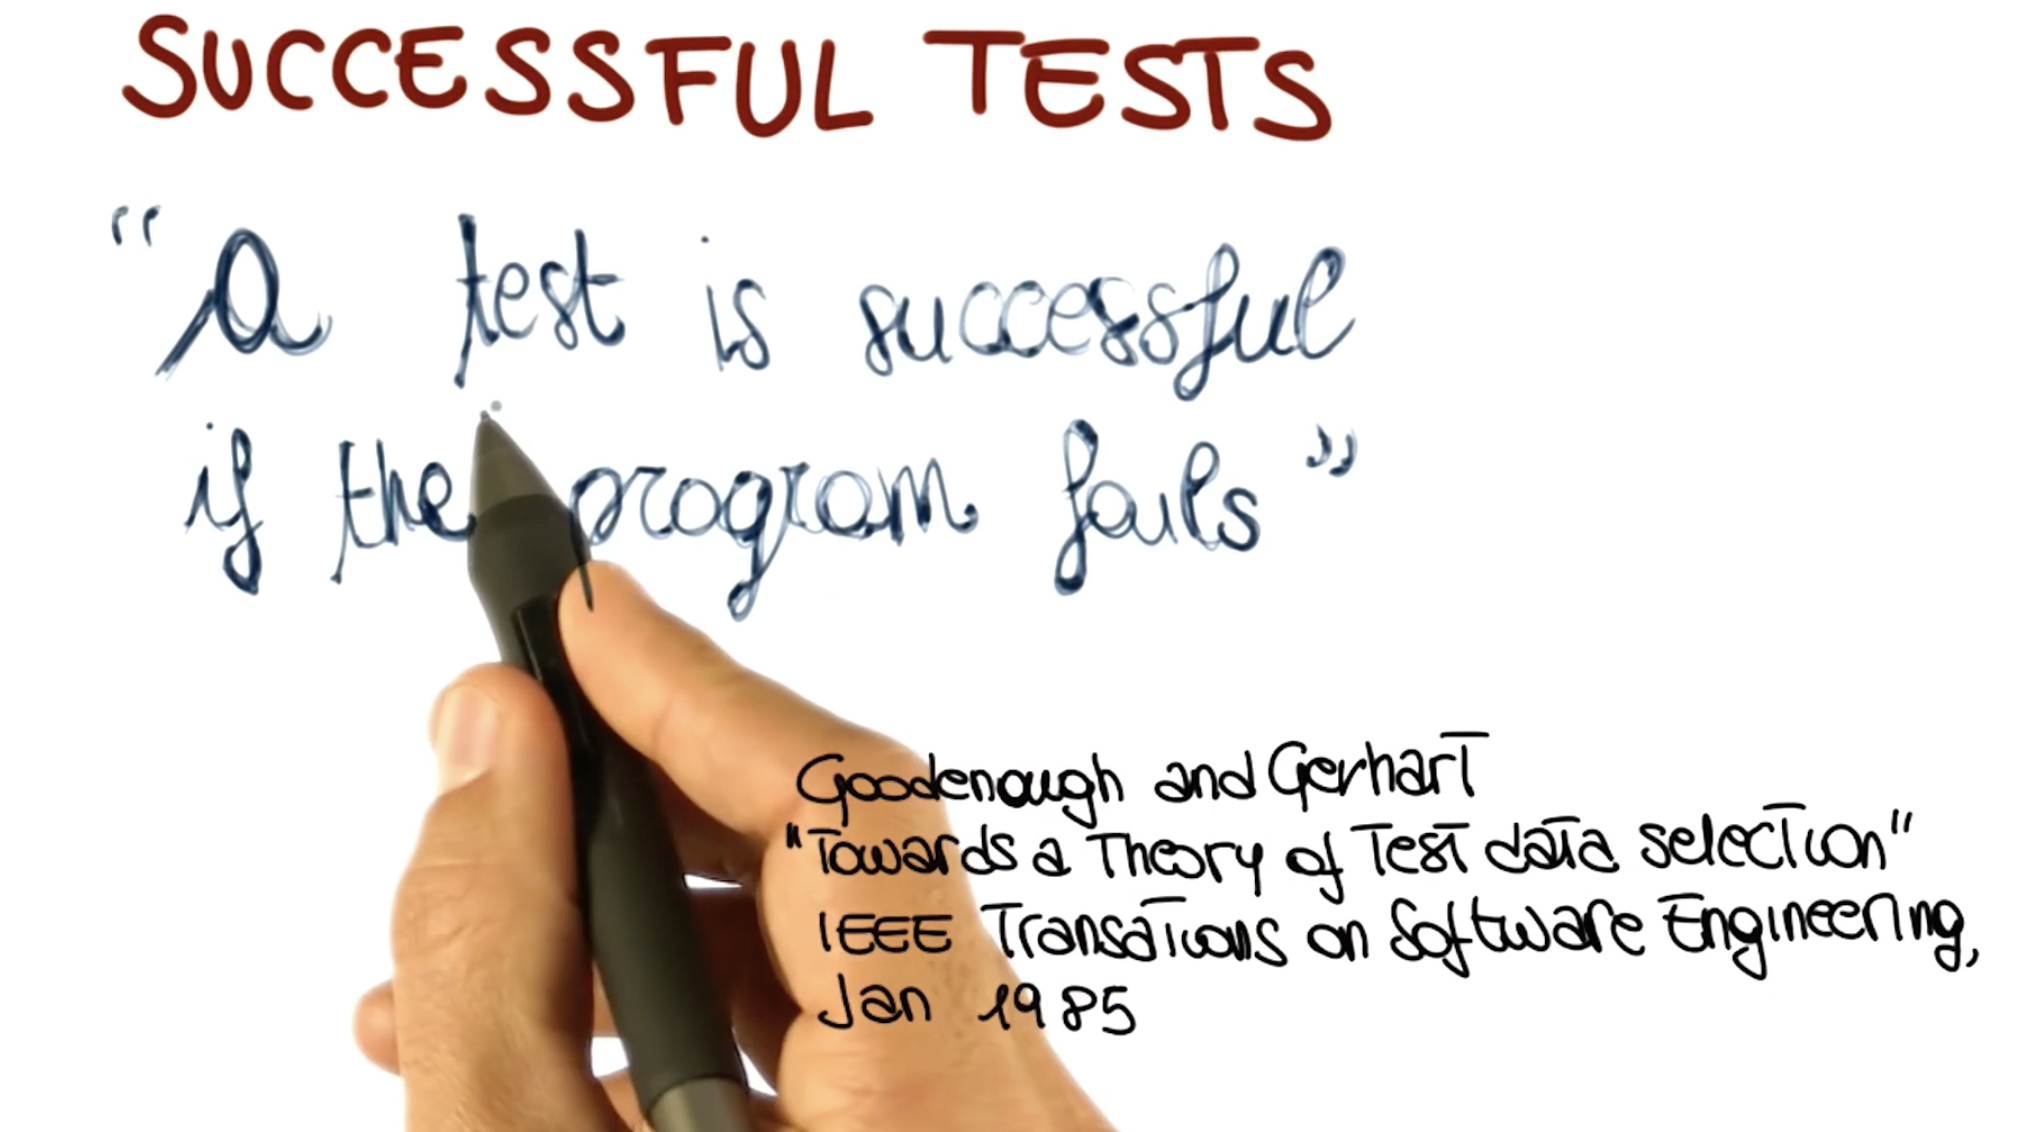 SUCCESSFUL TESTS
"A test is successful
if the program fails"
Goodenough and Gerhart
"Towards a Theory of Test data selection"
IEEE Transations on Software Engineering,
Jan 1985